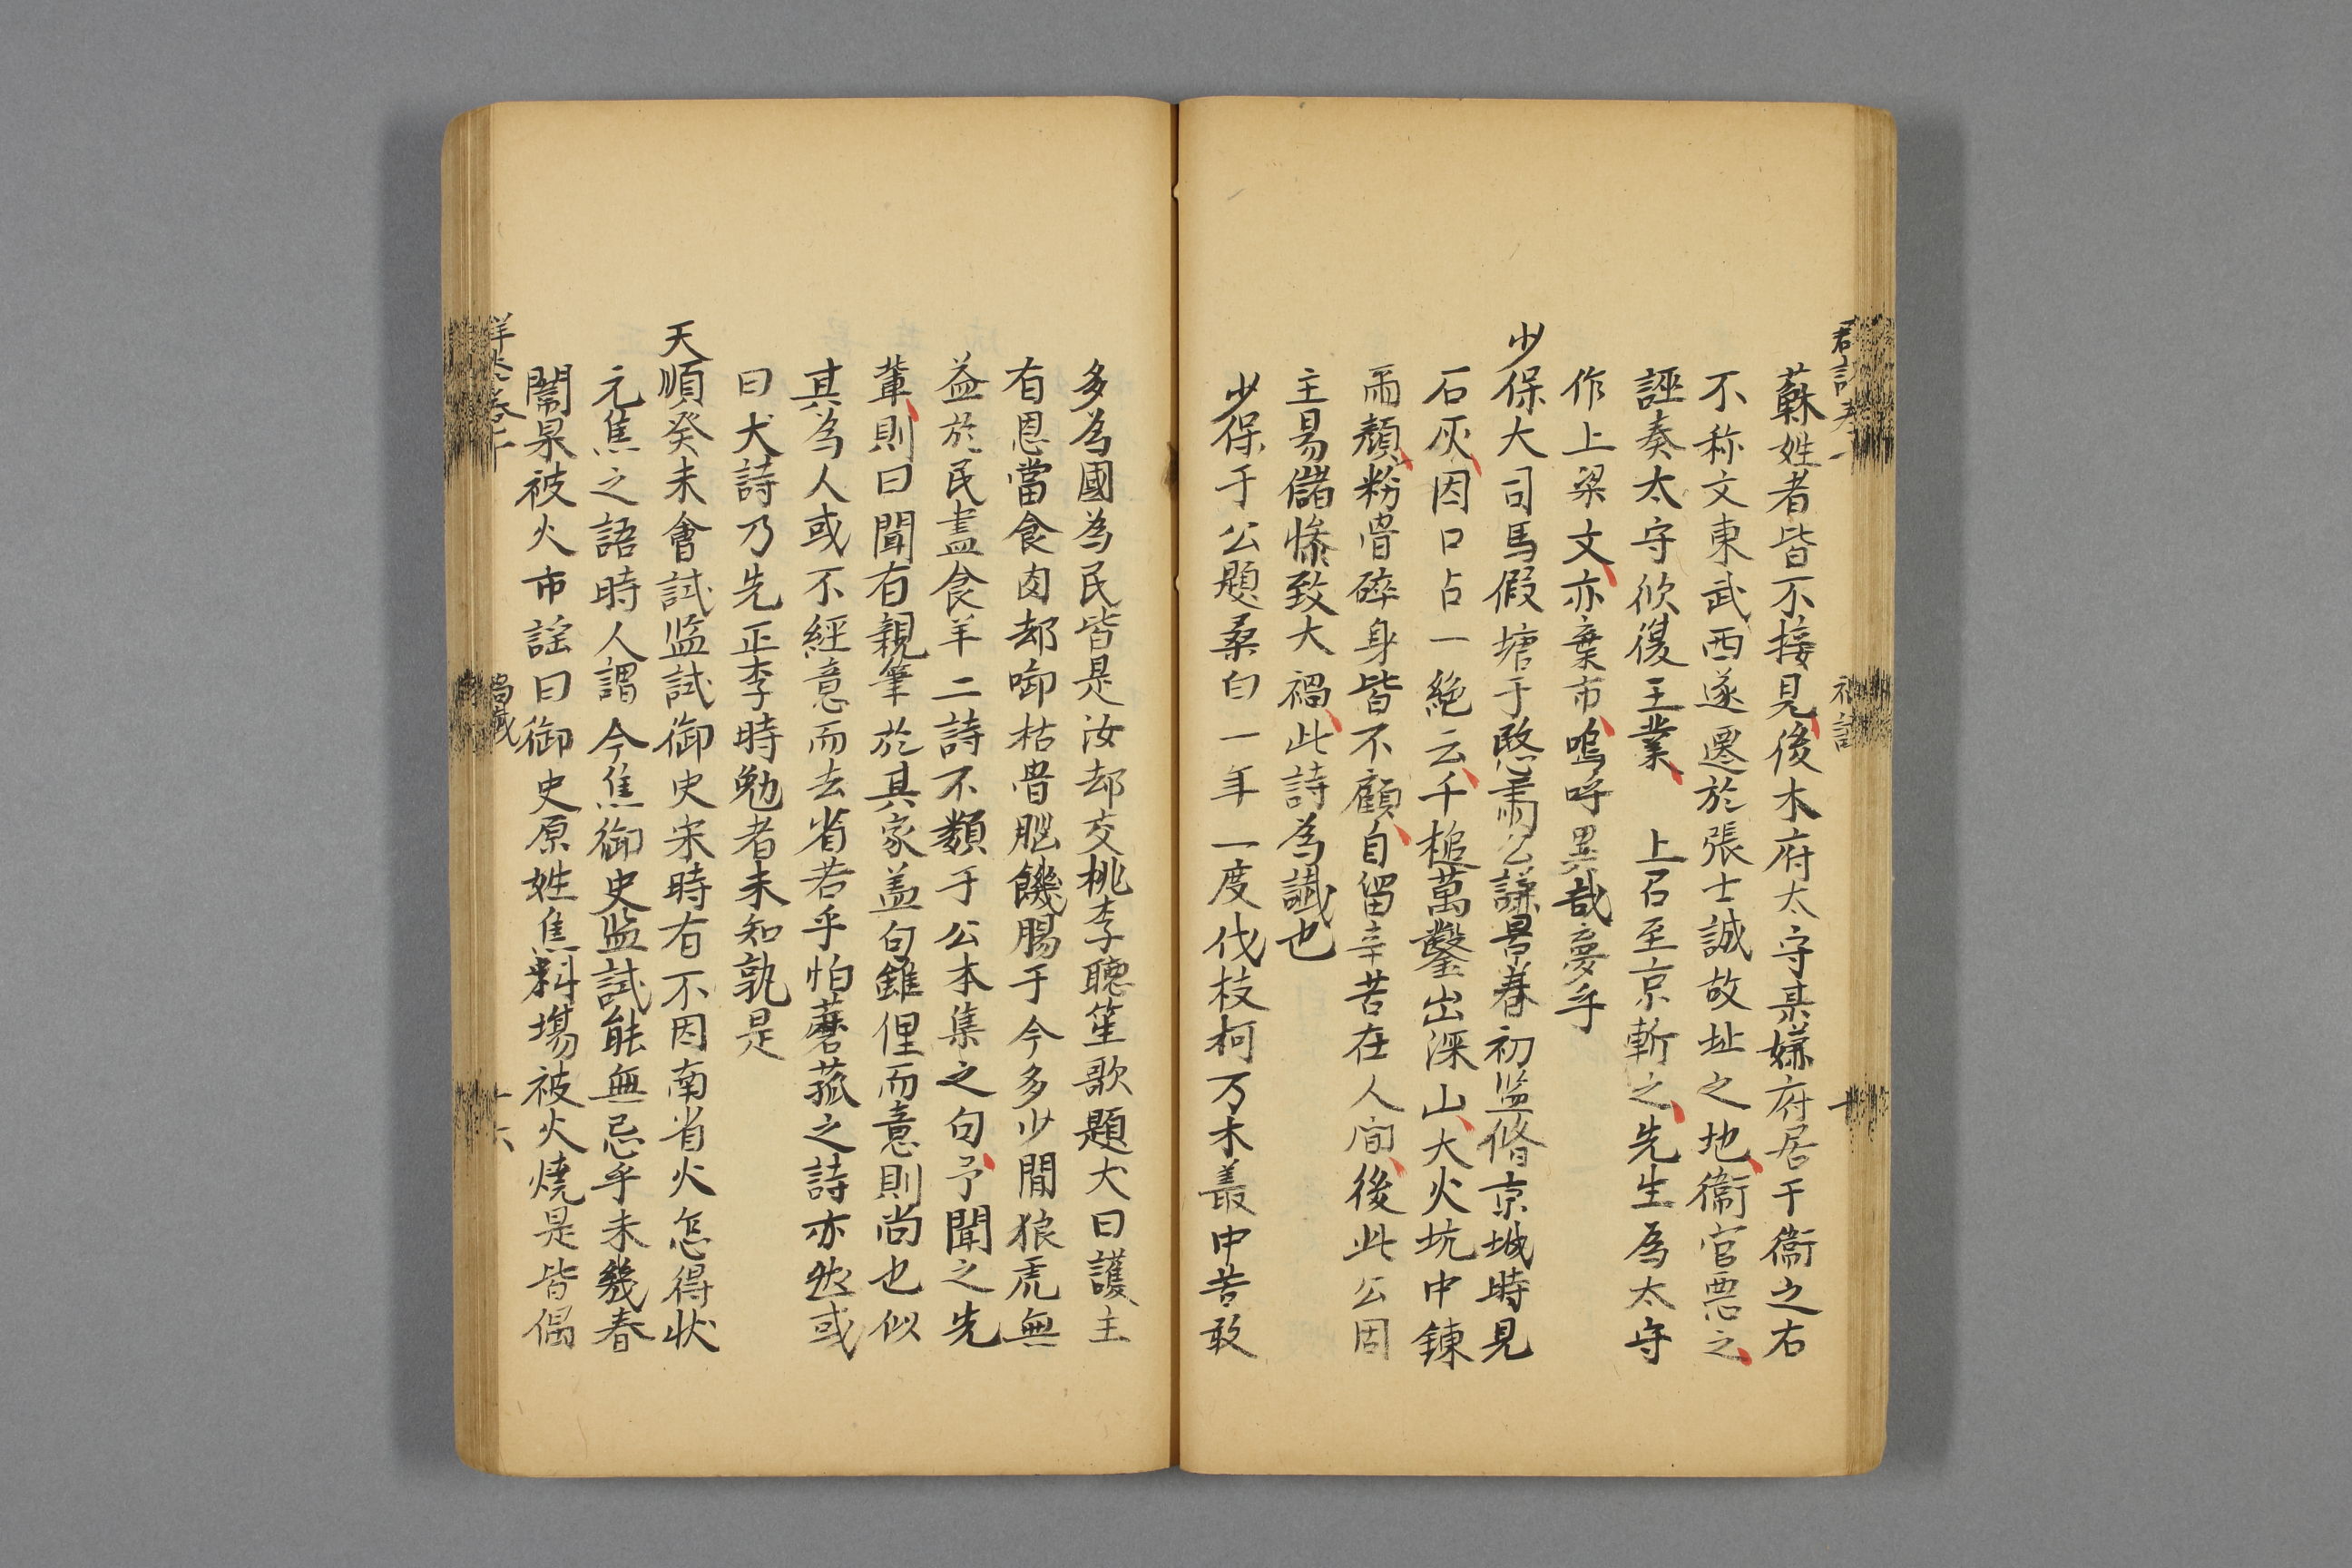 蘇姓者皆不接見後木府太守某嫌府居于衞之右
不称文東武西遂遷於張士誠故址之地衞官悪之
誣奏太守欣復王業 上召至京斬之先生爲太守
作上梁文亦棄市嗚呼異哉夢乎
少保大司馬假塘于愍肅公謙景春初监脩京城時見
石灰因口占一絶云千槌萬鑿出深山大火坑中鍊
而顔粉骨碎身皆不顧自留辛苦在人间後此公因
主易儲慘致大禍此詩為讖也
少保于公題桑白一年一度伐枝柯万木叢中苦敢
多為國為民皆是汝却交桃李聽笙歌題犬曰護主
有恩當食肉却啣枯骨肥饑腸于今多少閒狼虎無
益於民盡食羊二詩不類于公本集之句予聞之先
輩則曰聞有親筆於其家盖句雖俚而意則尚也似
其為人或不經意而去省若乎怕蘑菰之詩亦然或
曰犬詩乃先正李時勉者未知孰是
天順癸未會試监試御史宋時有不因南省火怎得状
元焦之語時人謂今焦御史监試能無忌乎未幾春
鬧杲被火市謡曰御史原姓焦料塲被火燒是皆偶